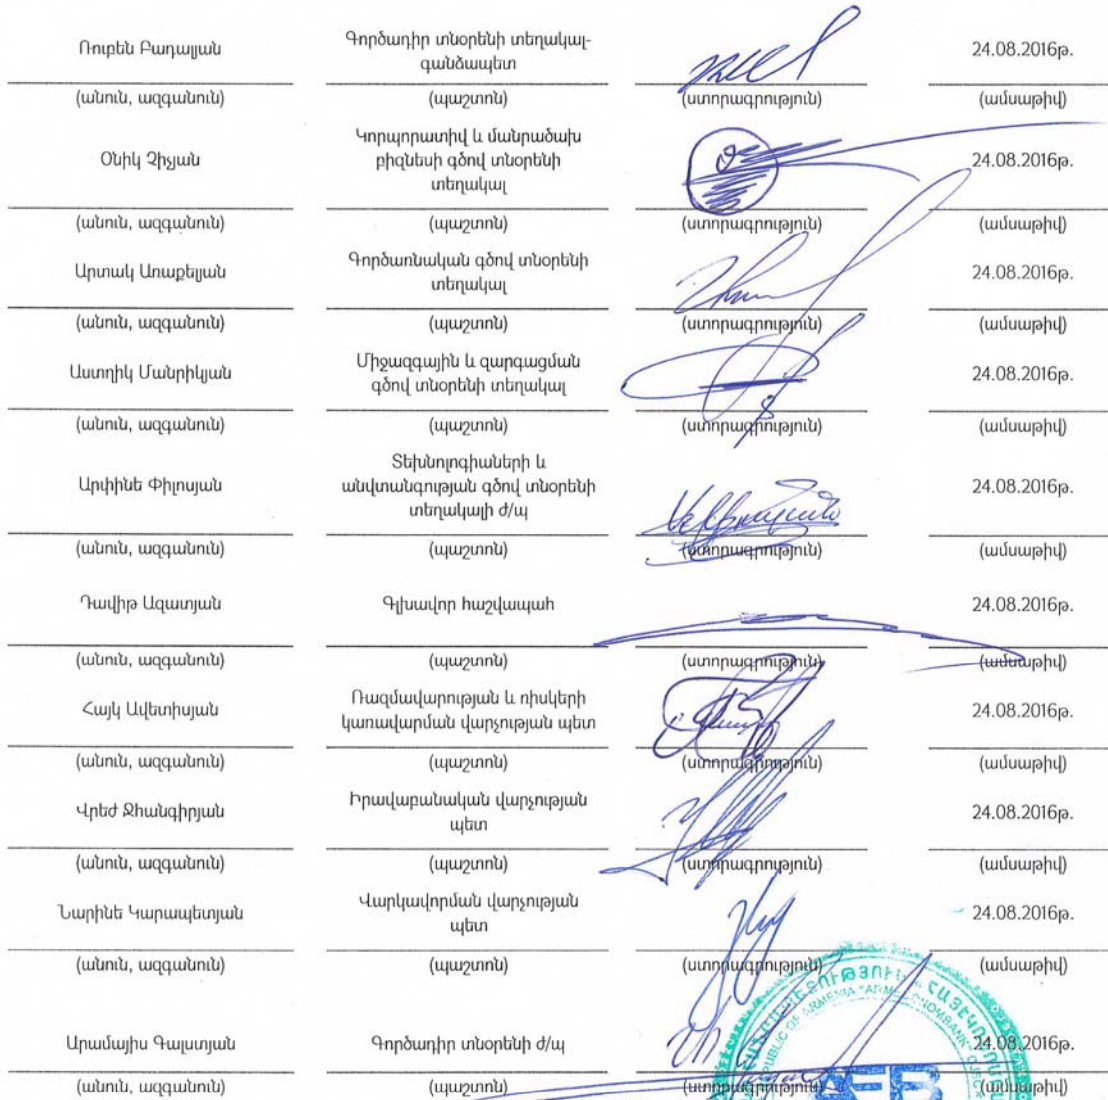 Ռուբեն Բադալյան Գործադիր տնօրենի տեղակալ- 24.08.2016թ.
գանձապետ
(անուն, ազգանուն) (պաշտոն) (ստորագրություն) (ամսաթիվ)
Կորպորատիվ և մանրածախ
Օնիկ Չիչյան բիզնեսի գծով տնօրենի 24.08.2016թ.
տեղակալ
(անուն, ազգանուն) (պաշտոն) (ստորագրություն) (ամսաթիվ)
Արտակ Առաքելյան Գործառնական գծով տնօրենի 24.08.2016թ.
տեղակալ
(անուն, ազգանուն) (պաշտոն) (ստորագրություն) (ամսաթիվ)
Աստղիկ Մանրիկյան Միջազգային և զարգացման 24.08.2016թ.
գծով տնօրենի տեղակալ
(անուն, ազգանուն) (պաշտոն) (ստորագրություն) (ամսաթիվ)
Տեխնոլոգիաների և
Արփինե Փիլոսյան անվտանգության գծով տնօրենի 24.08.2016թ.
տեղակալի ժ/պ
(անուն, ազգանուն) (պաշտոն) (ստորագրություն) (ամսաթիվ)
Դավիթ Ազատյան Գլխավոր հաշվապահ 24.08.2016թ.
(անուն, ազգանուն) (պաշտոն) (ստորագրություն) (ամսաթիվ)
Հայկ Ավետիսյան Ռազմավարության և ռիսկերի 24.08.2016թ.
կառավարման վարչության պետ
(անուն, ազգանուն) (պաշտոն) (ստորագրություն) (ամսաթիվ)
Վրեժ Ջհանգիրյան Իրավաբանական վարչության 24.08.2016թ.
պետ
(անուն, ազգանուն) (պաշտոն) (ստորագրություն) (ամսաթիվ)
Նարինե Կարապետյան Վարկավորման վարչության 24.08.2016թ.
պետ
(անուն, ազգանուն) (պաշտոն) (ստորագրություն) (ամսաթիվ)
Արամայիս Գալստյան Գործադիր տնօրենի ժ/պ 24.08.2016թ.
(անուն, ազգանուն) (պաշտոն) (ստորագրություն) (ամսաթիվ)
AEB